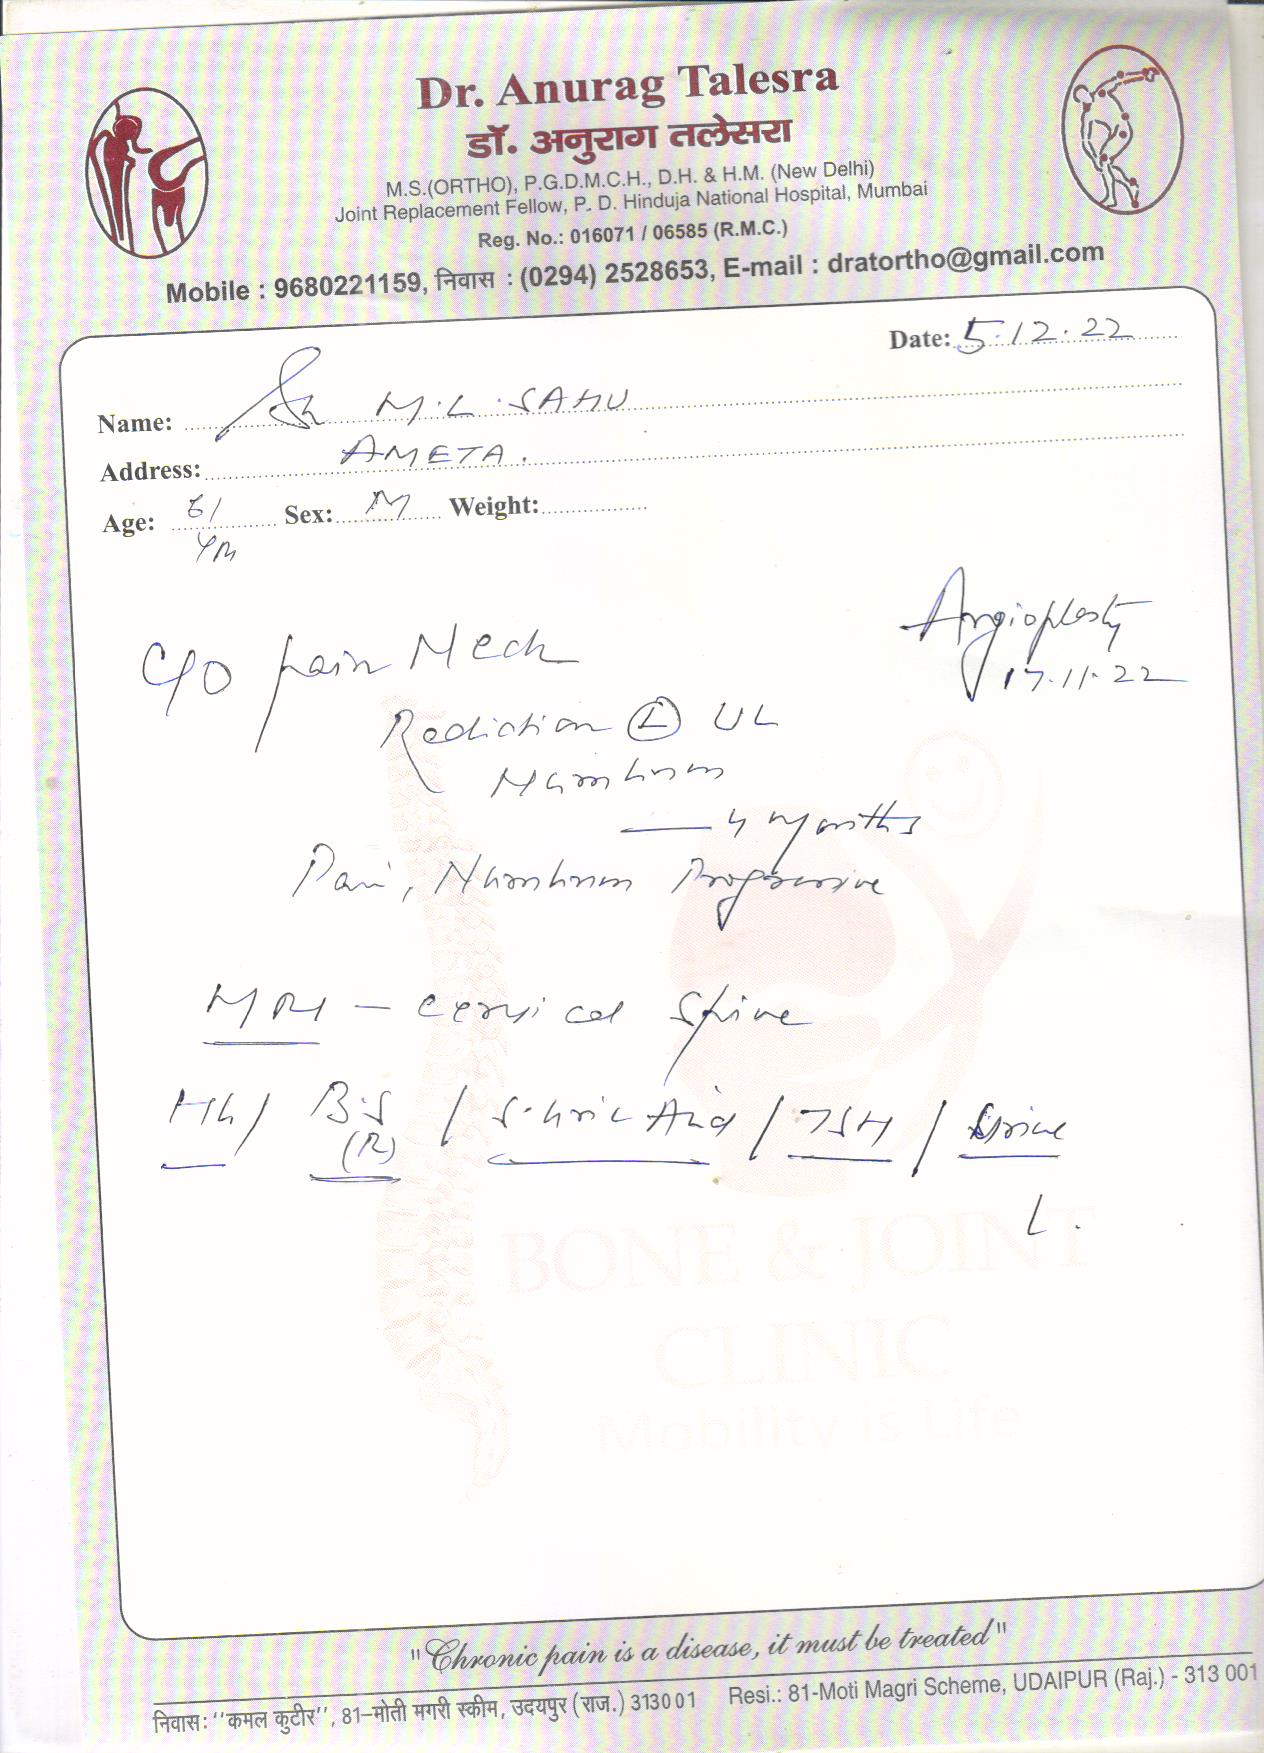 Dr. Anurag Talesra
डॉ. अनुराग तलेसरा
M.S.(ORTHO), P.G.D.M.C.H., D.H. & H.M. (New Delhi)
Joint Replacement Fellow, P. D. Hinduja National Hospital, Mumbai
Reg. No.: 016071 / 06585 (R.M.C.)
Mobile : 9680221159, निवास : (0294) 2528653, E-mail : dratortho@gmail.com
Date: 5.12.22
Name: Sh M.L. SAHU
Address: AMETA.
Age: 61 Sex: M Weight:
Angioplasty
17.11.22
C/O pain Neck
Radiation Ⓛ UL
Numbness
— 4 months
Pain, Numbness Progressive
MRI - Cervical Spine
Hb / B.S / S. Uric Acid / TSH / Urine
(R)
BONE & JOINT
CLINIC
Mobility is Life
"Chronic pain is a disease, it must be treated"
निवास: ‘‘कमल कुटीर’’, 81–मोती मगरी स्कीम, उदयपुर (राज.) 313001 Resi.: 81-Moti Magri Scheme, UDAIPUR (Raj.) - 313 001